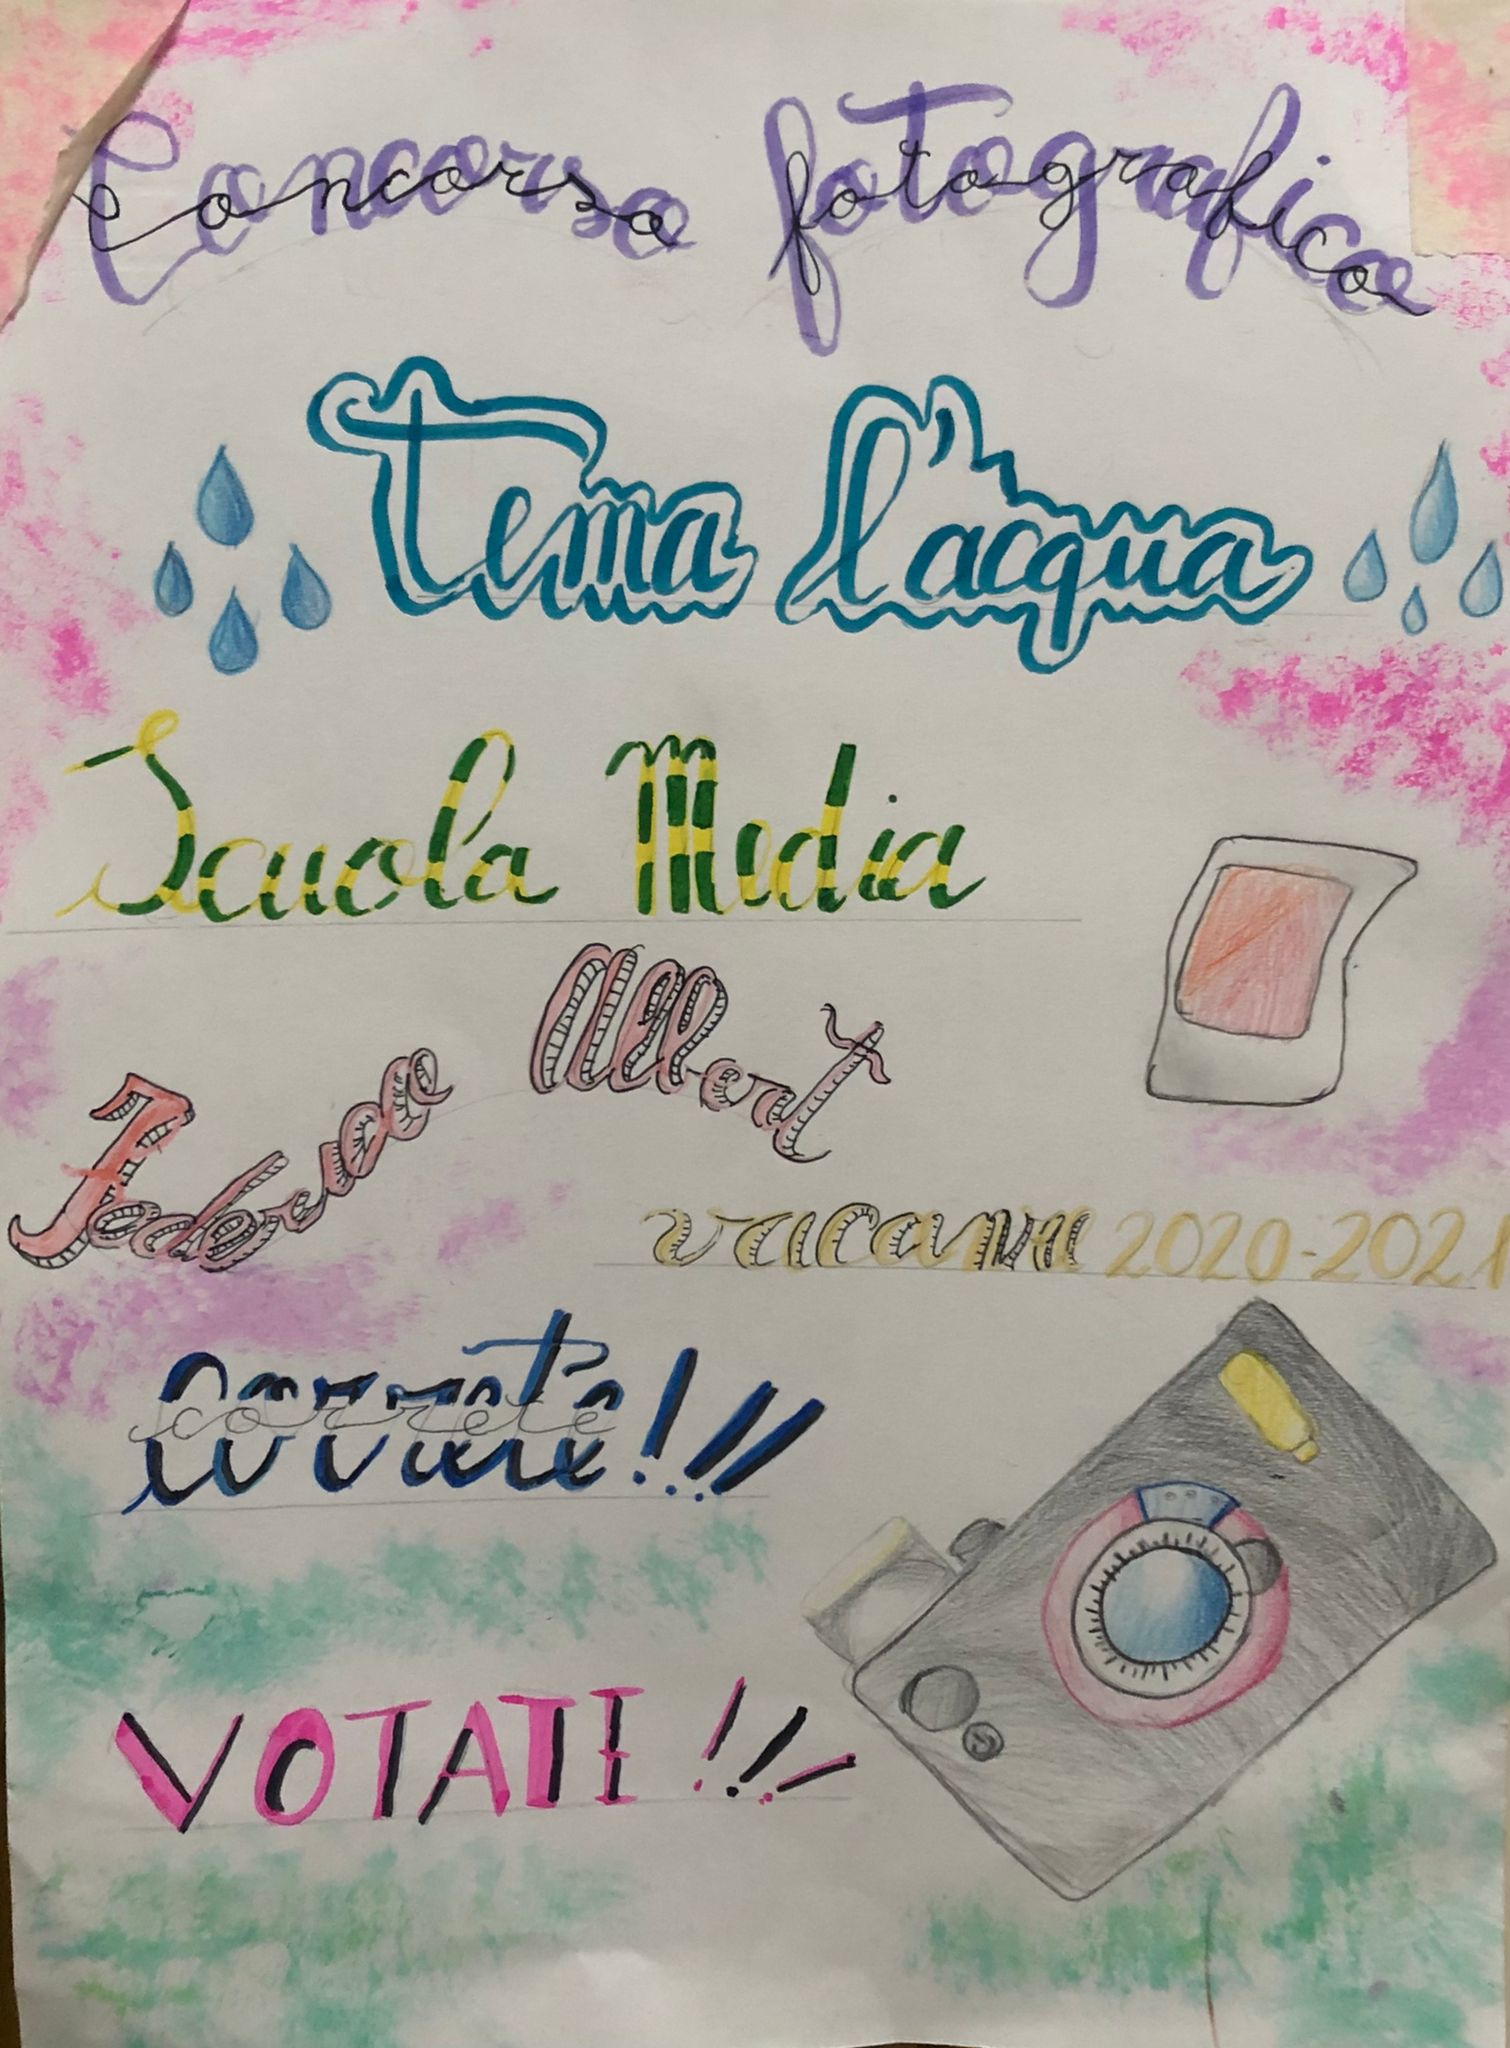 Concorso fotografico
Tema l'acqua
Scuola Media
Federico Albert
vacanze 2020-2021
correte!!!
VOTATE!!!